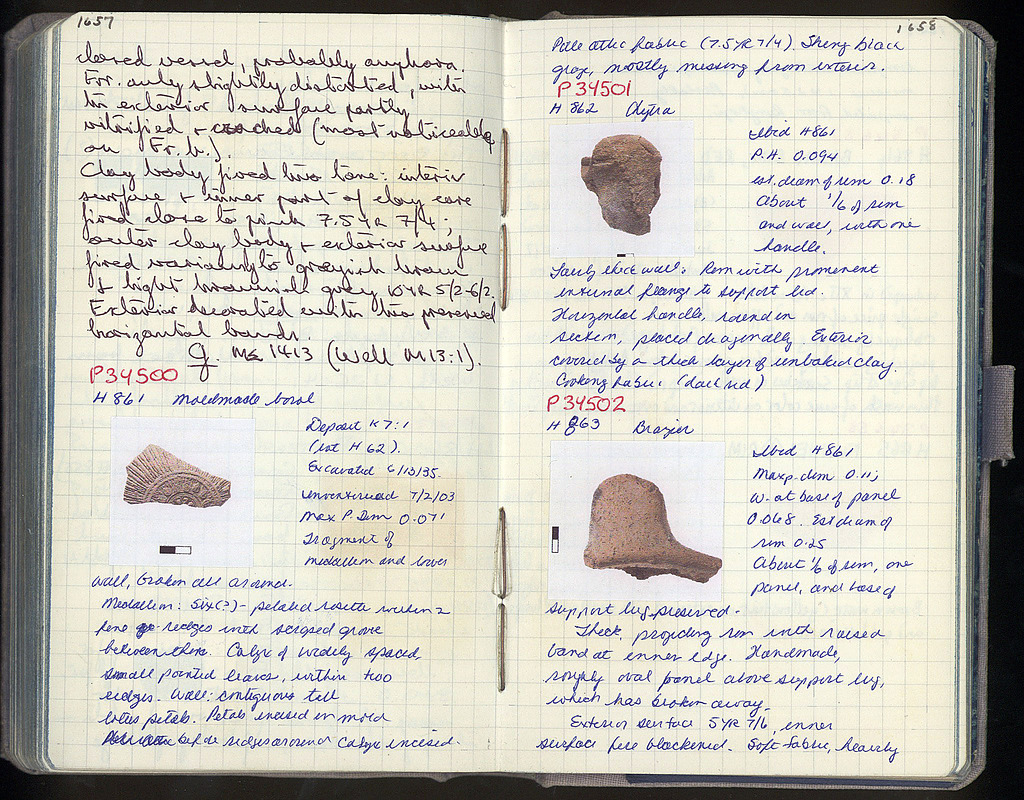 1657
closed vessel, probably amphora.
Frr. only slightly distorted, with
the exterior surface partly
vitrified + cracked (most noticeable
on Fr. b.).
Clay body fired two tone: interior
surface + inner part of clay core
fired close to pink 7.5 YR 7/4;
outer clay body + exterior surface
fired variously to grayish brown
& light brownish gray 10YR 5/2-6/2.
Exterior decorated with two preserved
horizontal bands.
1413 (Well M13:1).
P34500
H 861 Moldmade bowl
Deposit K7:1
(lot H 62).
Excavated 6/13/35.
Inventoried 7/2/03
Max P. Dim 0.071
Fragment of
medallion and lower
wall, broken all around.
Medallion: Six(?)-petaled rosette within 2
fine ridges with scraped groove
between them. Calyx of widely spaced,
small pointed leaves, within two
ridges. Wall: contiguous tall
lotus petals. Petals incised in mold
before ridges around calyx incised.
1658
Pale attic fabric (7.5YR 7/4). Shiny black
glaze, mostly missing from exterior.
P34501
H 862 Chytra
Ibid H861
P.H. 0.094
est. diam of rim 0.18
About 1/6 of rim
and wall, with one
handle.
Fairly thick wall. Rim with prominent
internal flange to support lid.
Horizontal handle, round in
section, placed diagonally. Exterior
covered by a thick layer of unbaked clay.
Cooking fabric (dark red)
P34502
H 863 Brazier
Ibid H861
Max p. dim 0.11;
w. at base of panel
0.068. Est diam of
rim 0.25
About 1/6 of rim, one
panel, and base of
support lug preserved.
Thick, projecting rim with raised
band at inner edge. Handmade,
roughly oval panel above support lug,
which has broken away.
Exterior surface 5YR 7/6, inner
surface fire blackened. Soft fabric, heavily